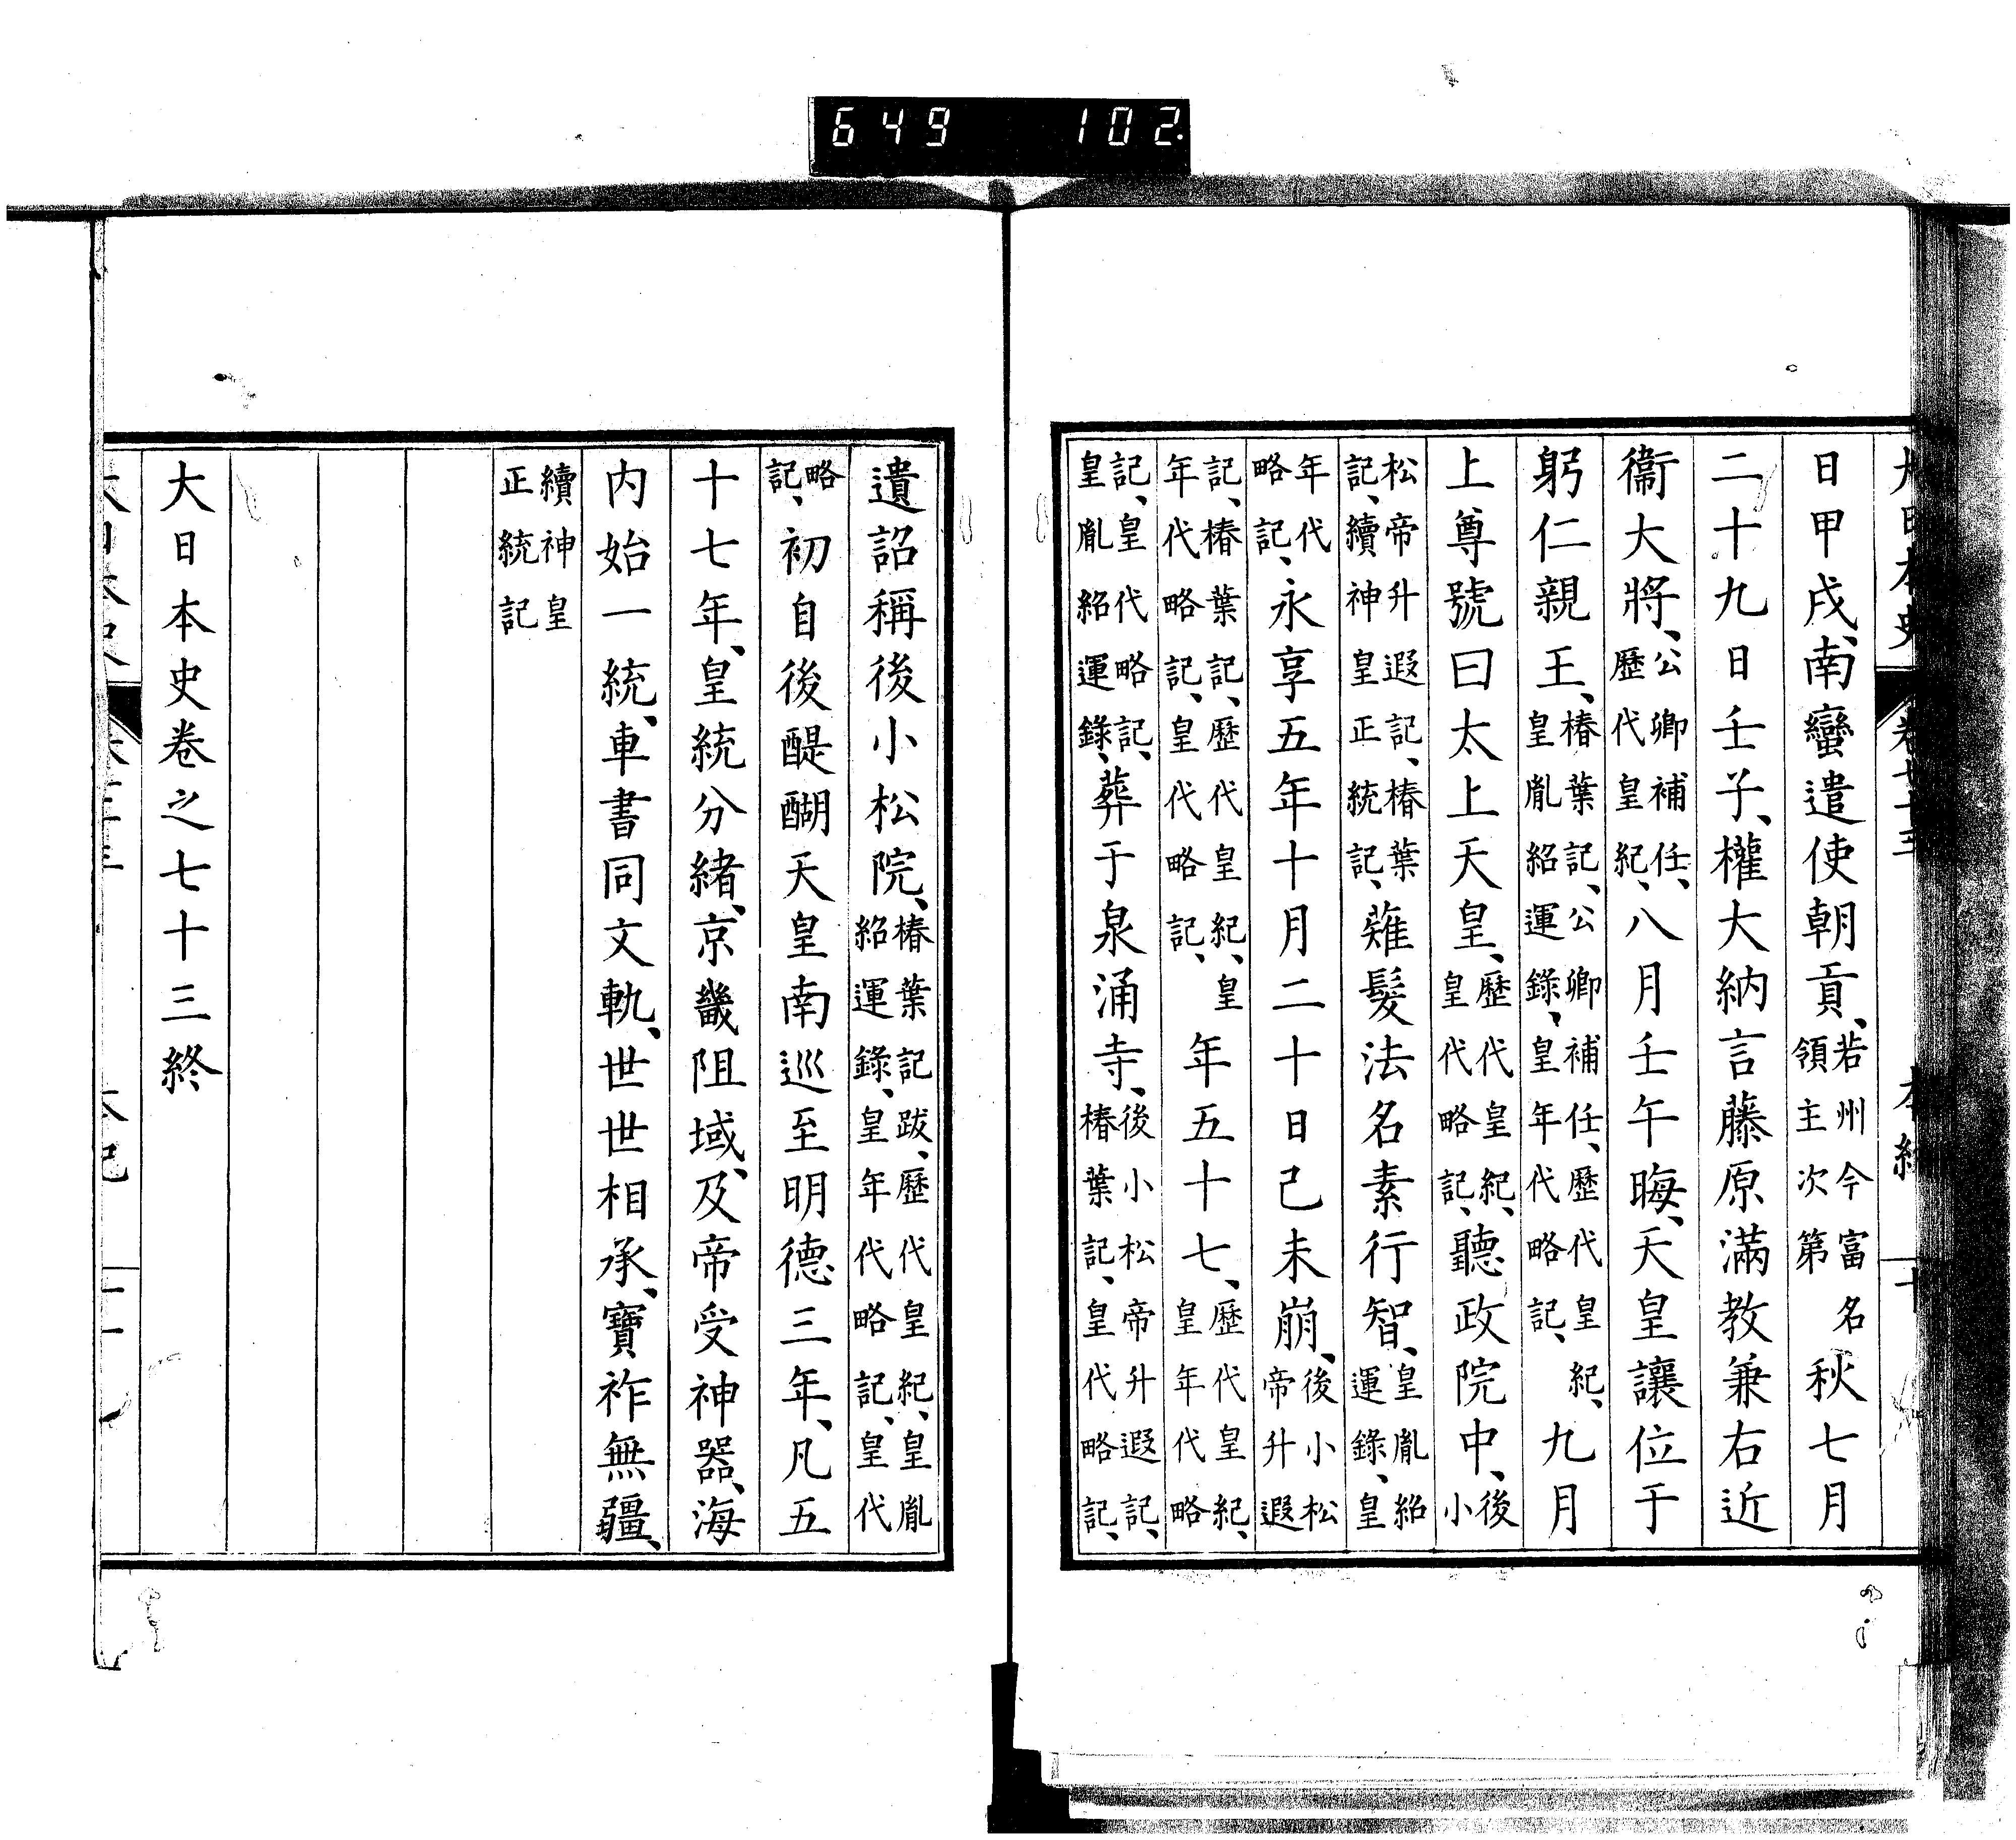 649 102
大日本史 卷七十三 本紀 十
日甲戌、南蠻遣使朝貢、若州今富名領主次第秋七月
二十九日壬子、權大納言藤原滿教兼右近
衞大將、公卿補任、歷代皇紀、八月壬午晦、天皇讓位于
躬仁親王、椿葉記、公卿補任、歷代皇紀、皇胤紹運錄、皇年代略記、九月
上尊號曰太上天皇、歷代皇紀、皇代略記、聽政院中、後小
松帝升遐記、椿葉記、續神皇正統記、薙髮法名素行智、皇胤紹運錄、皇
年代略記、永享五年十月二十日己未崩、後小松帝升遐
記、椿葉記、歷代皇紀、皇年代略記、皇代略記、年五十七、歷代皇紀、皇年代略
記、皇代略記、皇胤紹運錄、葬于泉涌寺、後小松帝升遐記、椿葉記、皇代略記、
遺詔稱後小松院、椿葉記跋、歷代皇紀、皇胤紹運錄、皇年代略記、皇代
略記、初自後醍醐天皇南巡至明德三年、凡五
十七年、皇統分緒、京畿阻域、及帝受神器、海
内始一統、車書同文軌、世世相承、寶祚無疆、
續神皇正統記
大日本史卷之七十三終